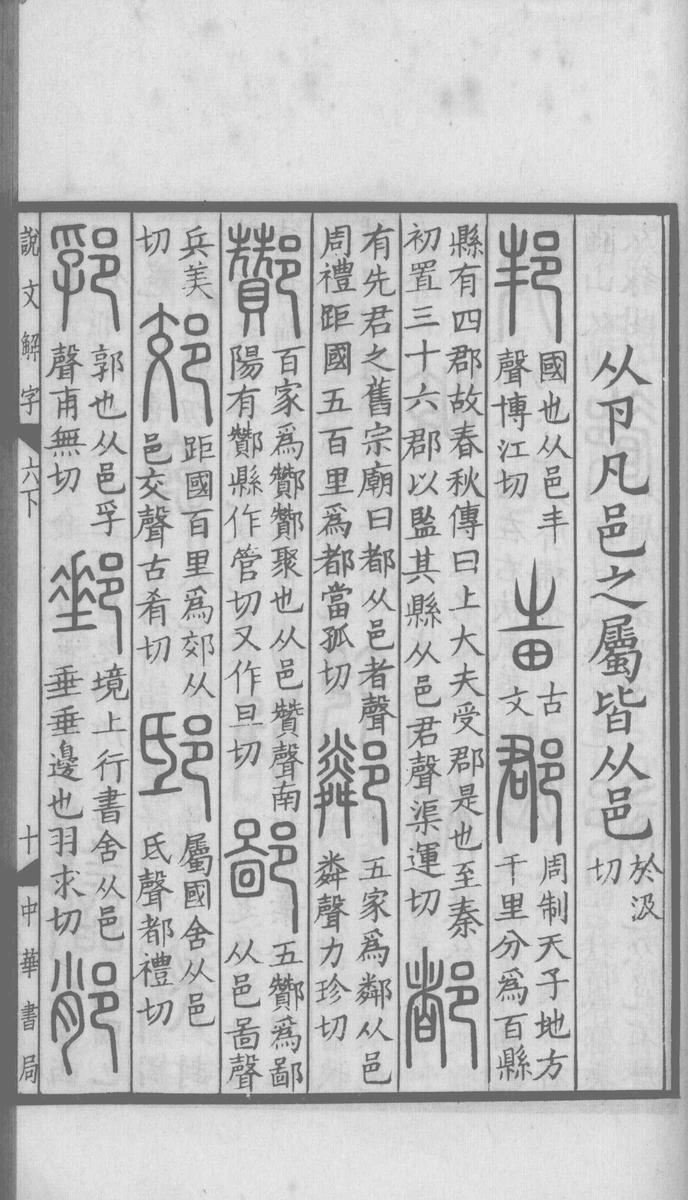 从卪凡邑之屬皆从邑於汲切
邦國也从邑丰聲博江切𤰫古文郡周制天子地方千里分爲百縣
縣有四郡故春秋傳曰上大夫受郡是也至秦初置三十六郡以監其縣从邑君聲渠運切都
有先君之舊宗廟曰都从邑者聲周禮距國五百里爲都當孤切鄰五家爲鄰从邑粦聲力珍切
酇百家爲酇酇聚也从邑贊聲南陽有酇縣作管切又作旦切鄙五酇爲鄙从邑啚聲
兵美切郊距國百里爲郊从邑交聲古肴切邸屬國舍从邑氐聲都禮切
郛郭也从邑孚聲甫無切郵境上行書舍从邑垂垂邊也羽求切𨛍
說文解字 六下 十 中華書局